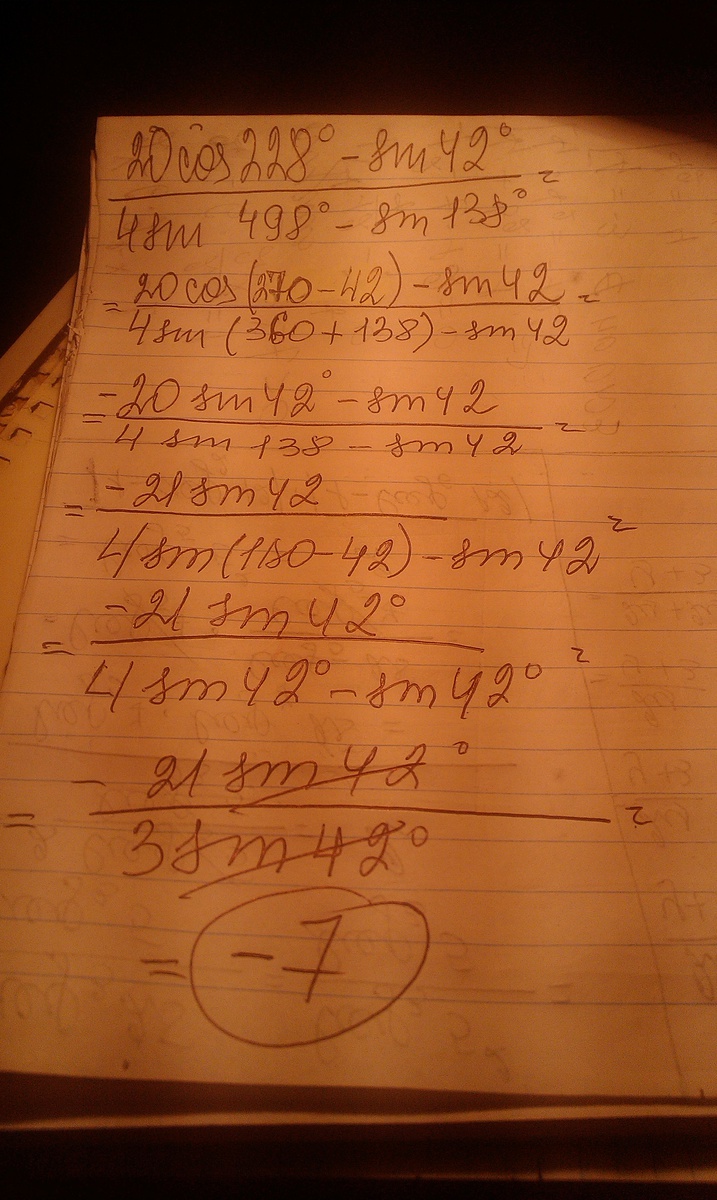 20cos 228° - sin 42°
4sin 498° - sin 138° =
= 20cos(270-42) - sin 42 =
4sin (360+138) - sin 42
= -20 sin 42° - sin 42 =
4 sin 138 - sin 42
= -21 sin 42 =
4sin(180-42) - sin 42
= -21 sin 42° =
4 sin 42° - sin 42°
= - 21 sin 42° =
3 sin 42°
= -7